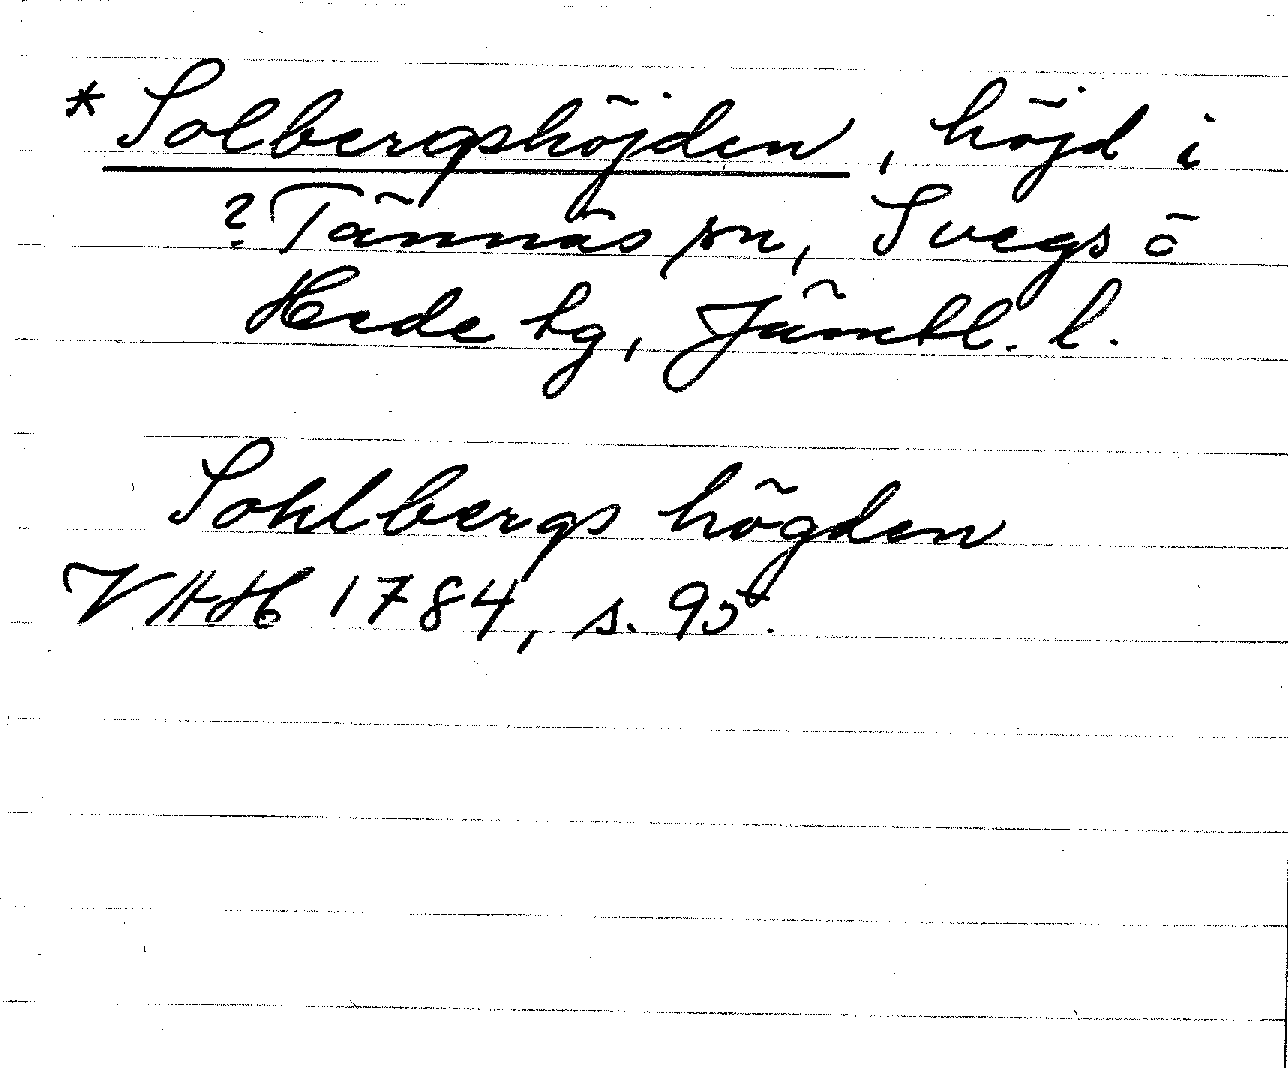 * Solbergshöjden, höjd i
? Tännäs sn, Svegs o
Hede tg, Jämtl. l.
Sohlbergs högden
VHAH 1784, s. 95.